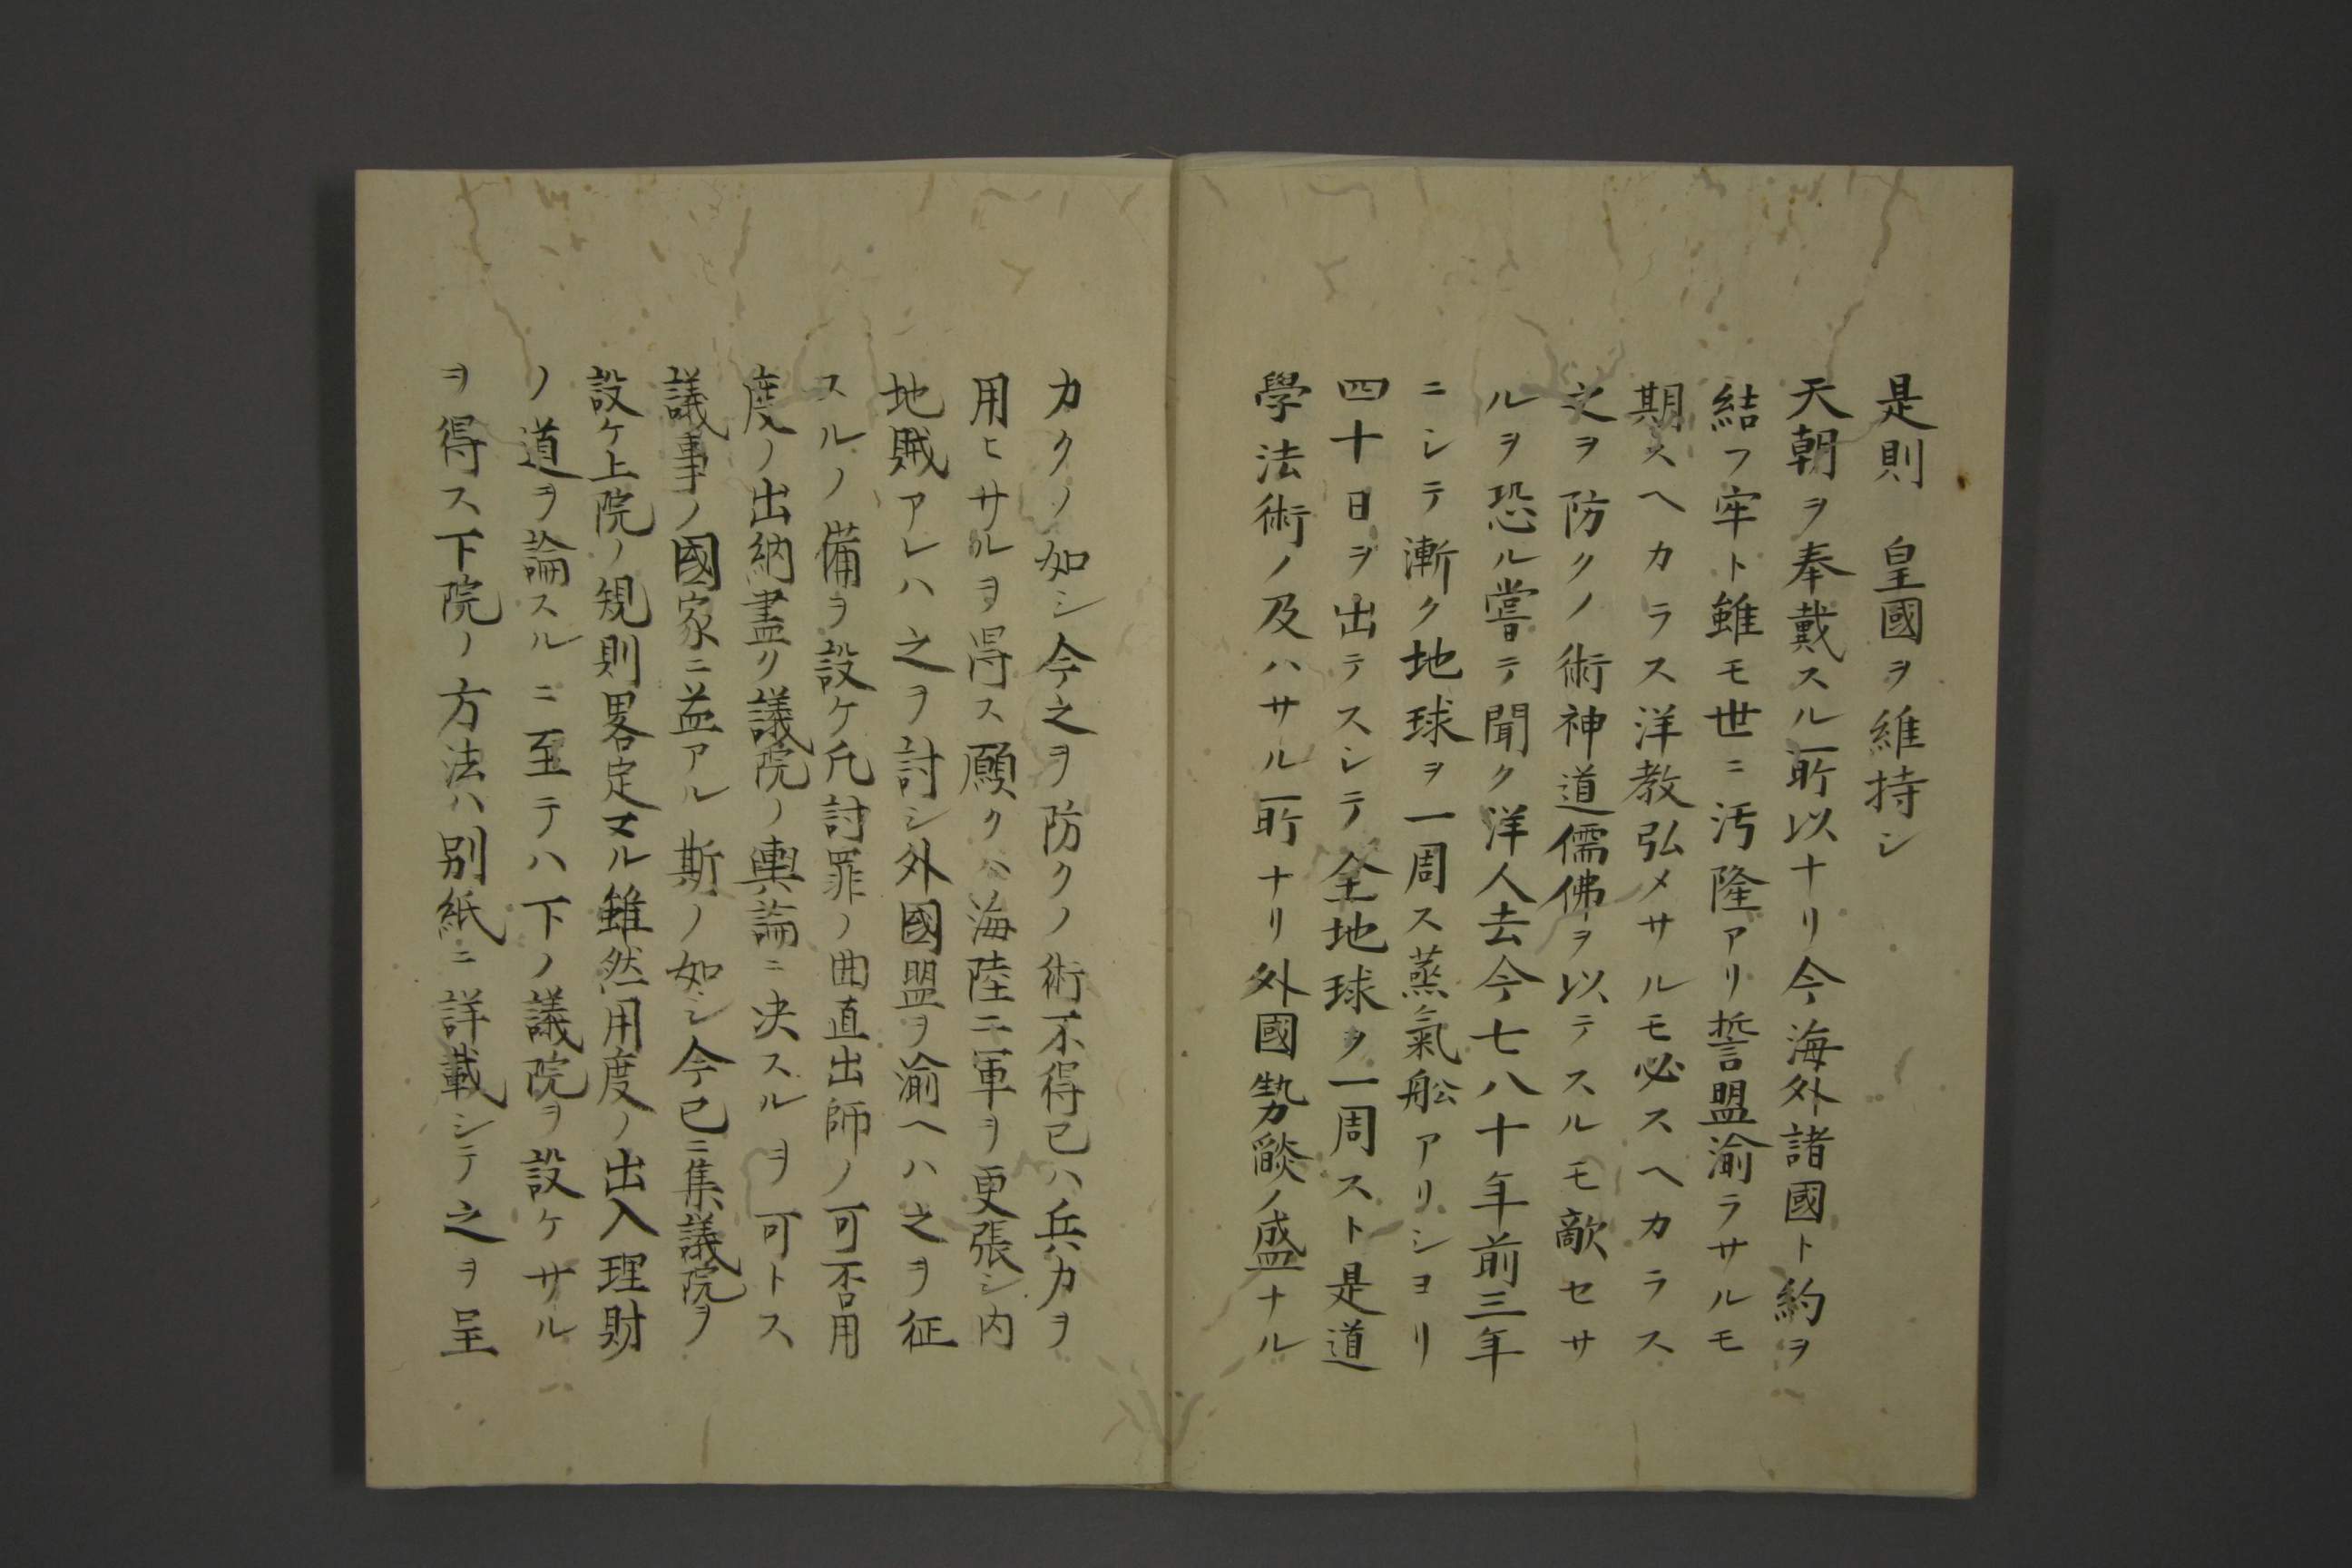 是則　皇國ヲ維持シ
天朝ヲ奉戴スル所以ナリ今海外諸國ト約ヲ
結フ牢ト雖モ世ニ汚隆アリ誓盟渝ラサルモ
期スヘカラス洋教弘メサルモ必スヘカラス
之ヲ防クノ術神道儒佛ヲ以テスルモ敵セサ
ルヲ恐ル嘗テ聞ク洋人去今七八十年前三年
ニシテ漸ク地球ヲ一周ス蒸氣舩アリシヨリ
四十日ヲ出テスシテ全地球ヲ一周スト是道
學法術ノ及ハサル所ナリ外國勢燄ノ盛ナル
カクノ如シ今之ヲ防クノ術不得已ハ兵力ヲ
用ヒサルヲ得ス願クハ海陸二軍ヲ更張シ内
地賊アレハ之ヲ討シ外國盟ヲ渝ヘハ之ヲ征
スルノ備ヲ設ケ凡討罪ノ曲直出師ノ可否用
度ノ出納盡ク議院ノ輿論ニ决スルヲ可トス
議事ノ國家ニ益アル斯ノ如シ今已ニ集議院ヲ
設ケ上院ノ規則畧定マル雖然用度ノ出入理財
ノ道ヲ論スルニ至テハ下ノ議院ヲ設ケサル
ヲ得ス下院ノ方法ハ別紙ニ詳載シテ之ヲ呈